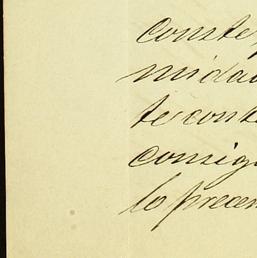 conste
midad
te conte
consig
lo prece